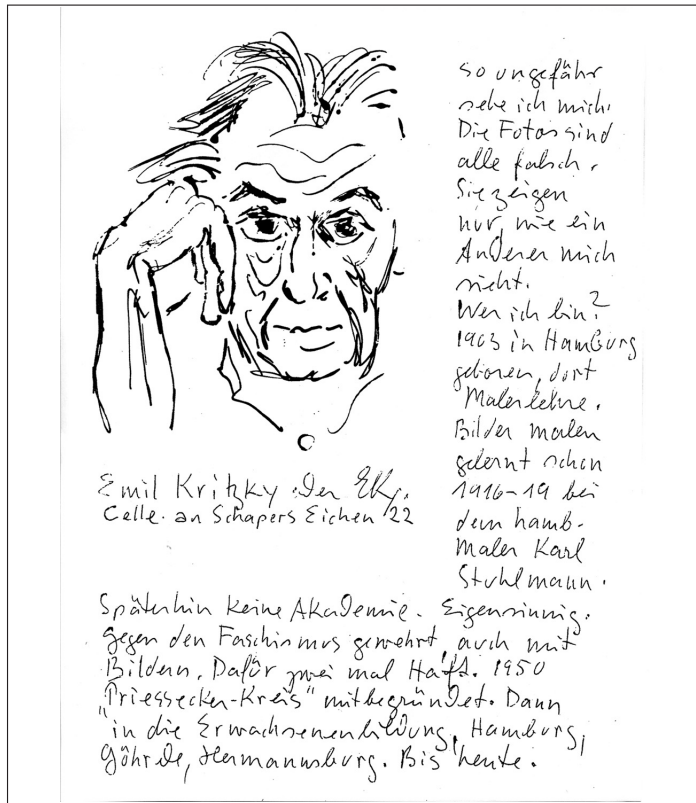 so ungefähr
sehe ich mich.
Die Fotos sind
alle falsch.
Sie zeigen
nur, wie ein
Anderer mich
sieht.
Wer ich bin?
1903 in Hamburg
geboren, dort
Malerlehre.
Bilder malen
gelernt schon
1916-19 bei
dem hamb.
Maler Karl
Stuhlmann.
Emil Kritzky der EKy.
Celle. an Schapers Eichen 22
Späterhin keine Akademie. Eigensinnig.
gegen den Faschismus gewehrt, auch mit
Bildern. Dafür zwei mal Haft. 1950
"Priessecker-Kreis" mitbegründet. Dann
in die Erwachsenenbildung, Hamburg,
Göhrde, Hermannsburg. Bis heute.